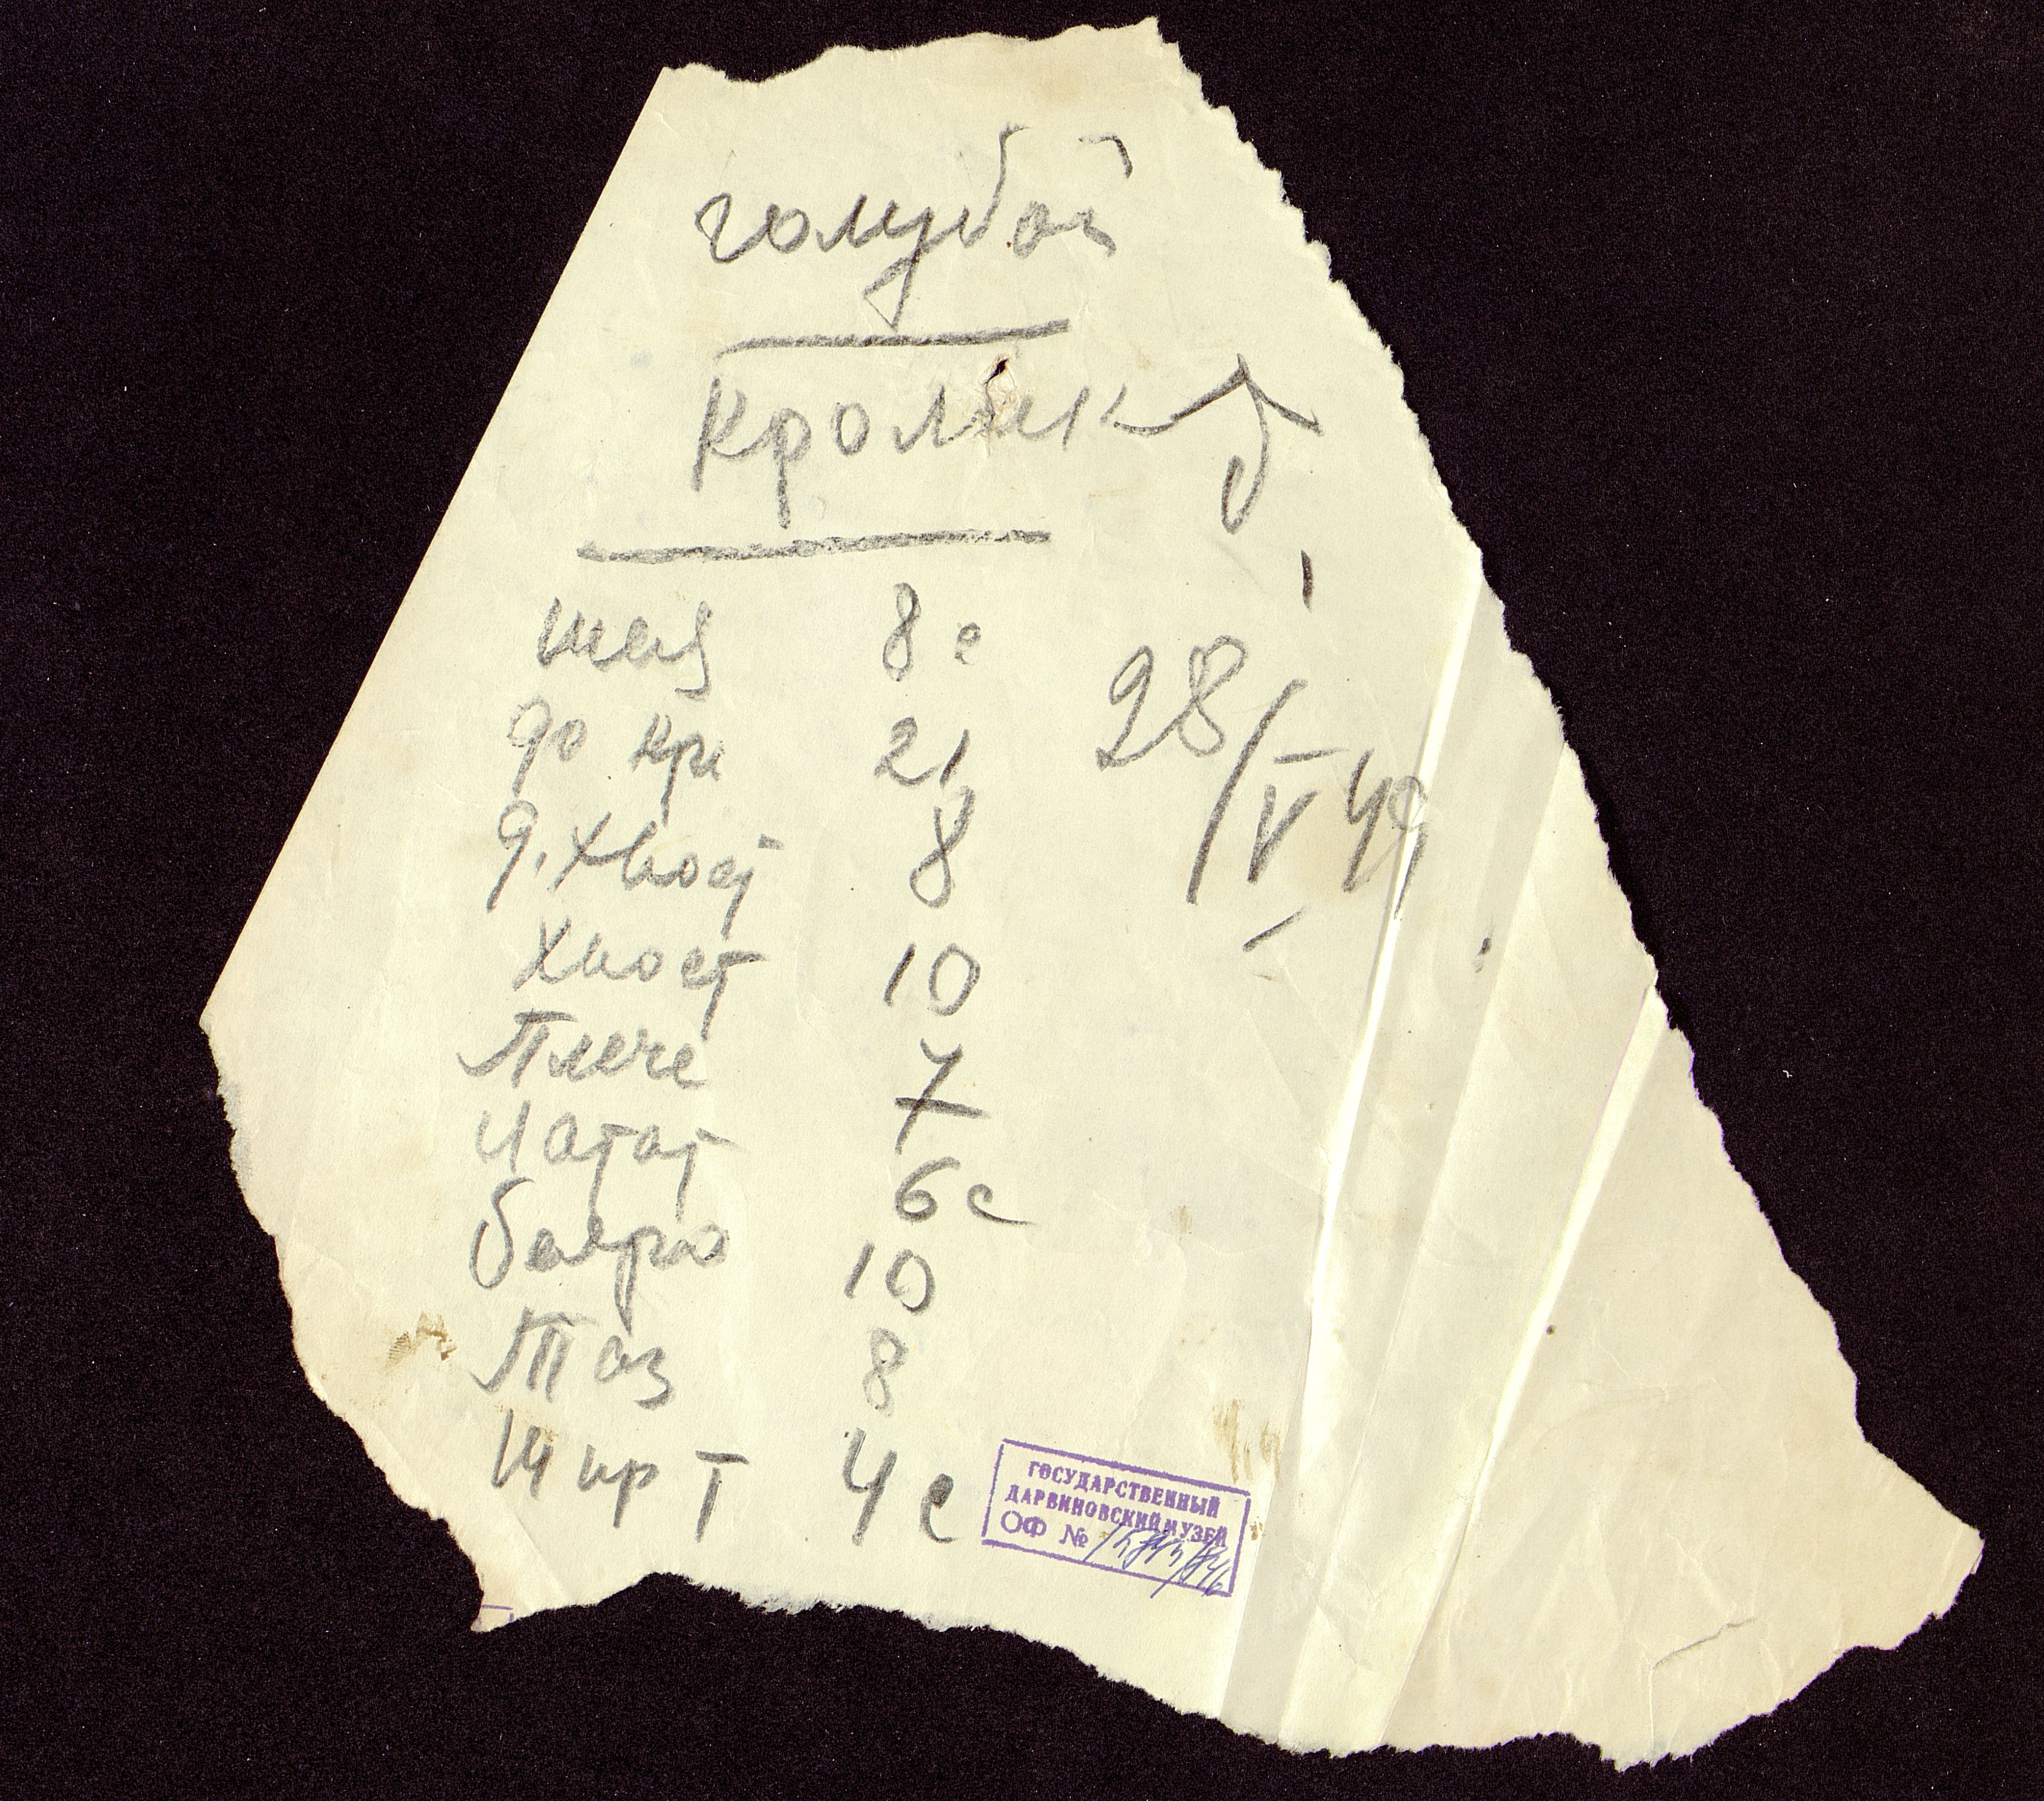 голубой
кролик ♂
шея 8 с
до кр 21
28/V 49
д. хвост 8
Хвост 10
Плече 7
6 с
бедро 10
Таз 8
Шир Т 4 с
ГОСУДАРСТВЕННЫЙ
ДАРВИНОВСКИЙ МУЗЕЙ
ОФ №